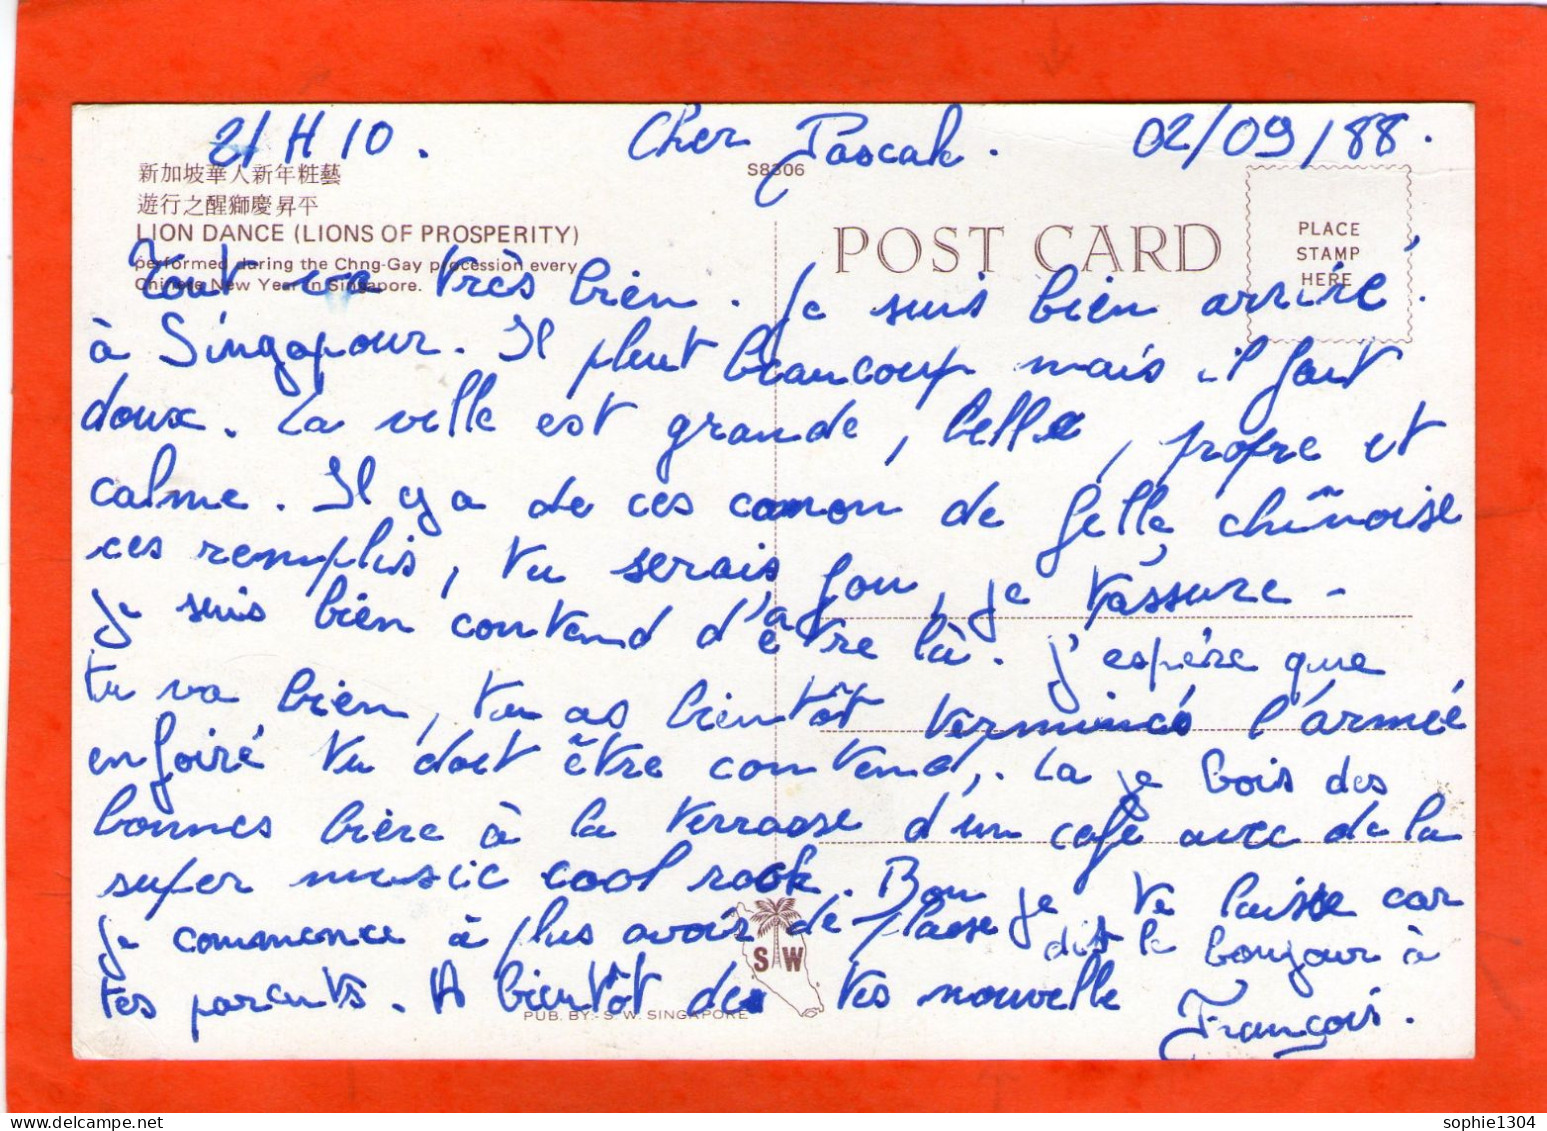 21 H 10. Cher Pascale. 02/09/88.
新加坡華人新年粧藝
遊行之醒獅慶昇平
LION DANCE (LIONS OF PROSPERITY)
performed during the Chng-Gay procession every
Chinese New Year in Singapore.
S8306
POST CARD
PLACE
STAMP
HERE
Tout va très bien. Je suis bien arrivé.
à Singapour. Il pleut beaucoup mais il fait
doux. La ville est grande, belle, propre et
calme. Il y a de ces canon de fille chinoise
ces remplis, tu serais fou, je t'assure -
Je suis bien contend d'être là. J'espére que
tu va bien, tu as bientôt terminés l'armée
enfoiré tu doit être contend,. La je bois des
bonnes bière à la terrasse d'un café avec de la
super music cool rock. Bon je te laisse car
je commence à plus avoir de place dit le bonjour à
tes parents. A bientôt de tes nouvelle
François.
S W
PUB. BY:- S. W. SINGAPORE
sophie1304